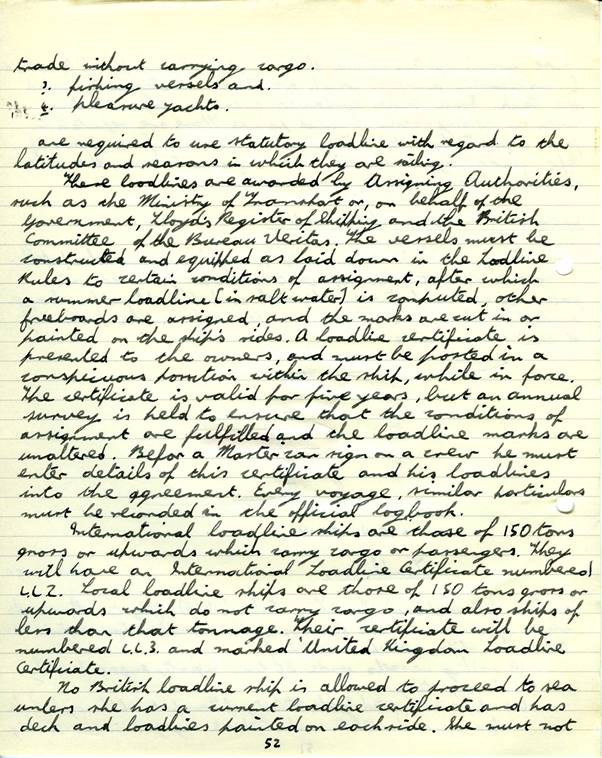 trade without carrying cargo.
3. fishing vessels and.
4. pleasure yachts.
are required to use statutory loadline with regard to the
latitudes and seasons in which they are sailing.
These loadlines are awarded by Assigning Authorities,
such as the Ministry of Transport or, on behalf of the
Government, Lloyd's Register of Shipping and the British
Committee of the Bureau Veritas. The vessels must be
constructed and equipped as laid down in the Lodline
Rules to certain conditions of assignment, after which
a summer loadline (in salt water) is computed, other
freeboards are assigned, and the marks are cut in or
painted on the ship's sides. A loadlie certificate is
presented to the owners, and must be posted in a
conspicuous position within the ship, while in force.
The certificate is valid for five years, but an annual
survey is held to ensure that the conditions of
assignment are fulfilled and the loadline marks are
unaltered. Befor a Master can sign on a crew he must
enter details of this certificate and his loadlines
into the agreement. Every voyage, similar particulars
must be recorded in the official logbook.
International loadline ships are those of 150 tons
gross or upwards which carry cargo or passengers. They
will have an International Loadline Certificate numbered
LL2. Local loadline ships are those of 150 tons gross or
upwards which do not carry cargo, and also ships of
less than that tonnage. Their certificate will be
numbered L.L.3. and marked United Kingdom Loadline
Certificate.
No British loadline ship is allowed to proceed to sea
unless she has a current loadline certificate and has
deck and loadlines painted on each side. She must not
52